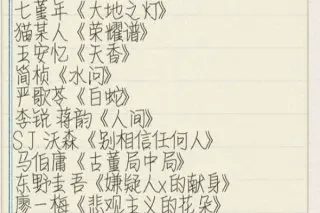 七堇年《大地之灯》
猫某人《荣耀谱》
王安忆《天香》
简桢《水问》
严歌苓《白蛇》
李锐 蒋韵《人间》
SJ 沃森《别相信任何人》
马伯庸《古董局中局》
东野圭吾《嫌疑人x的献身》
廖一梅《悲观主义的花朵》